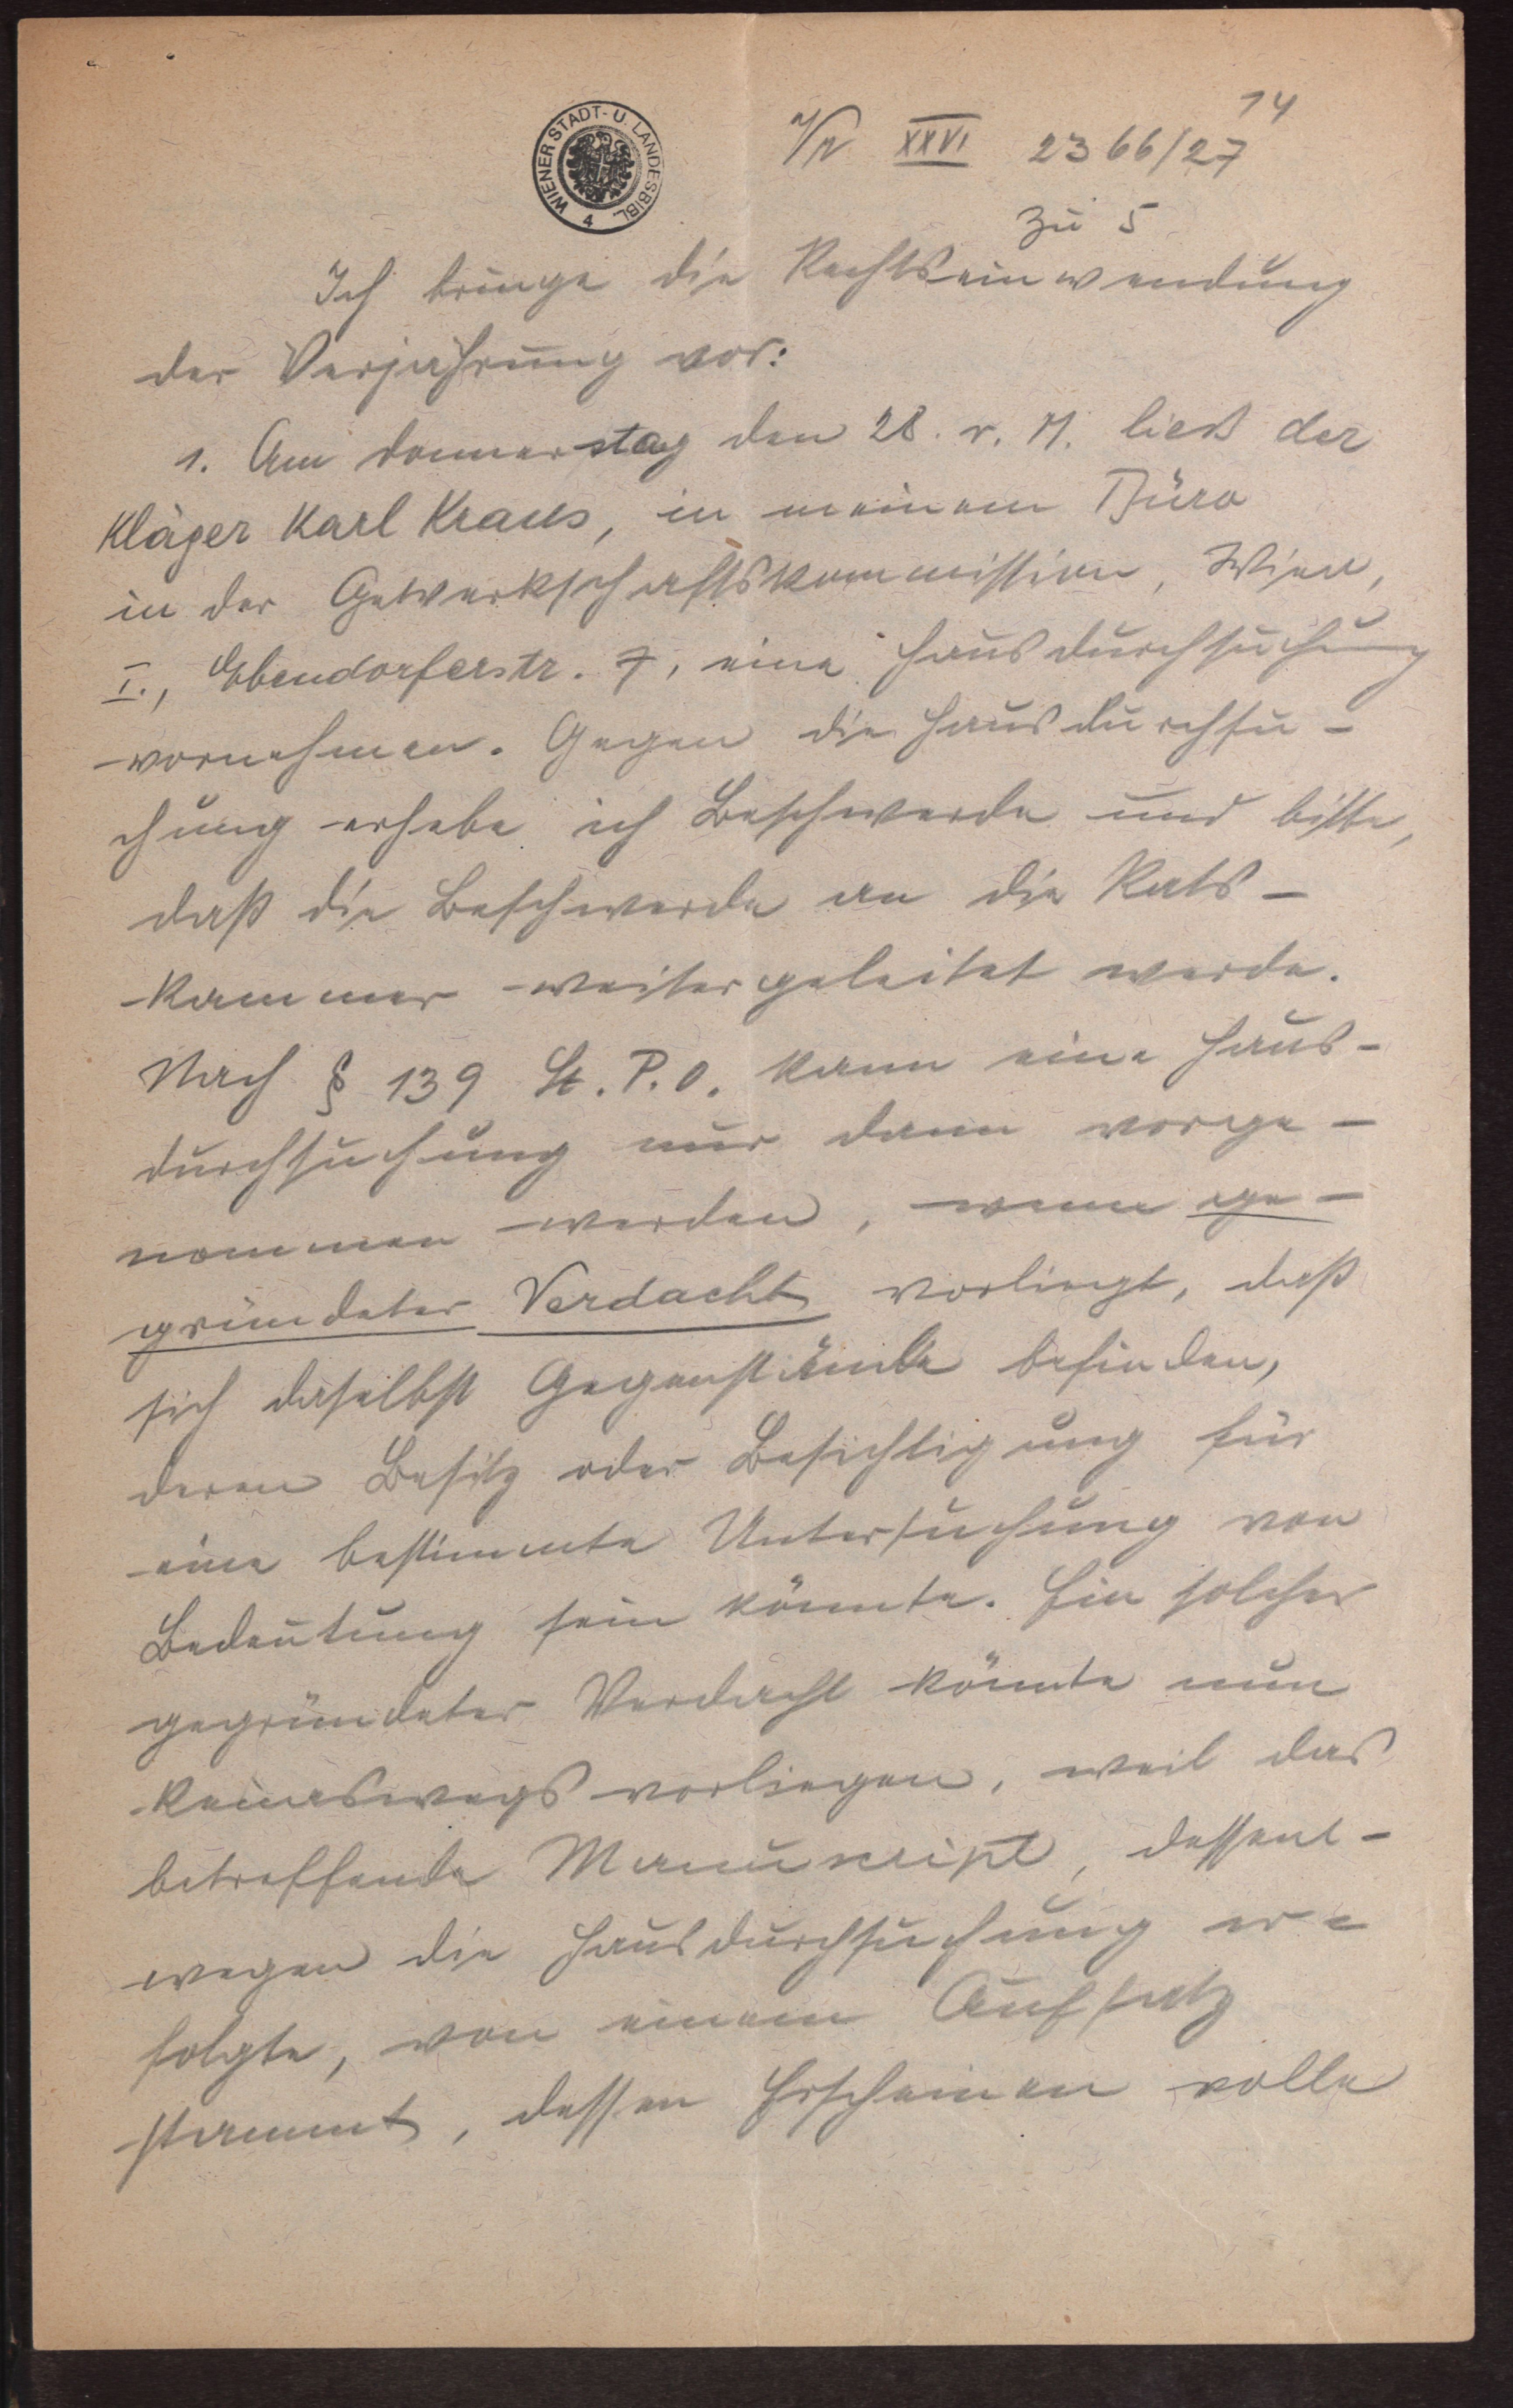 14
XXVI 2366/27
WIENER STADT- U. LANDESBIBL.
4
zu 5
Ich bringe die Rechtseinwendung
der Verjährung vor:
1. Am Donnerstag den 28. v. M. ließ der
Kläger Karl Kraus, in meinem Büro
in der Gewerkschaftskommission, Wien,
I., Ebendorferstr. 7, eine Hausdurchsuchung
vornehmen. Gegen die Hausdurchsu-
chung erhebe ich Beschwerde und bitte,
daß die Beschwerde an die Rats-
kammer weitergeleitet werde.
Nach § 139 St. P. O. kann eine Haus-
durchsuchung nur dann vorge-
nommen werden, wenn ge-
gründeter Verdacht vorliegt, daß
sich daselbst Gegenstände befinden,
deren Besitz oder Besichtigung für
eine bestimmte Untersuchung von
Bedeutung sein könnte. Ein solcher
gegründeter Verdacht könnte nun
keineswegs vorliegen, weil das
betreffende Manuskript, dessent-
wegen die Hausdurchsuchung er-
folgte, von einem Aufsatz
stammt, dessen Erscheinen volle